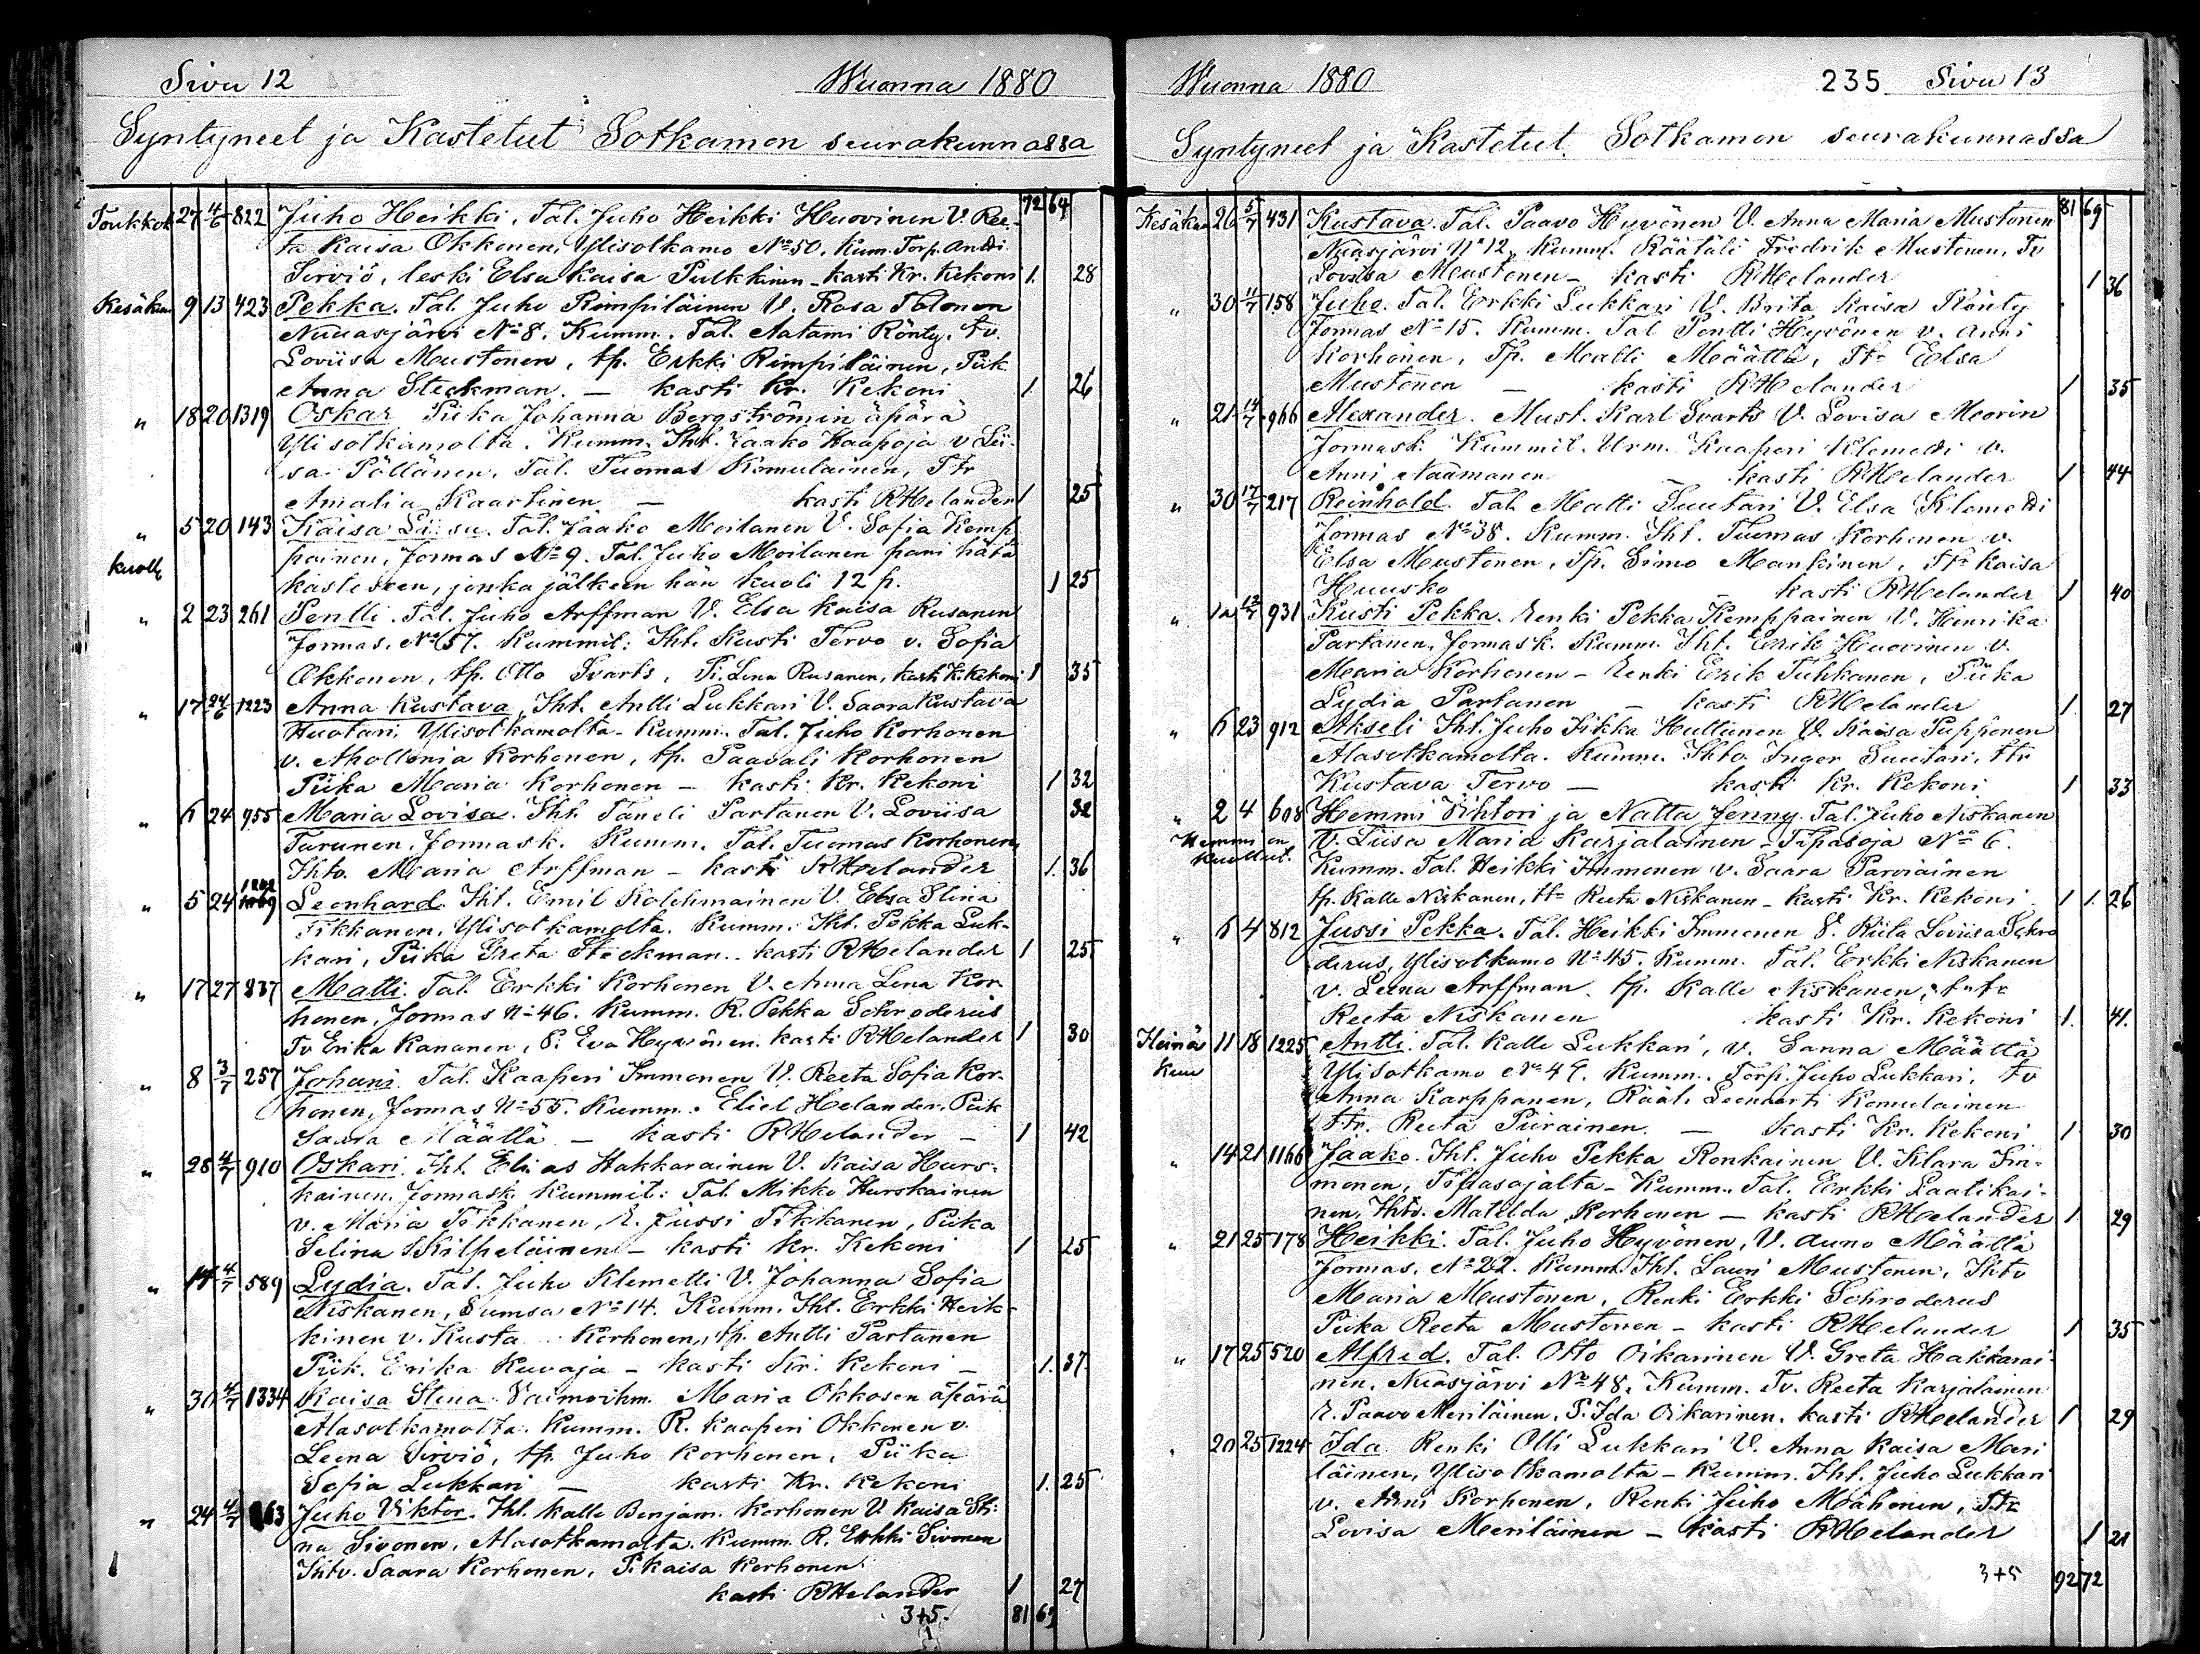 Sivu 12 Wuonna 1880
Syntyneet ja Kastetut Sotkamon seurakunnassa
72 64
Toukkok 27 4/6 822 Juho Heikki. Tal. Juho Heikki Huovinen V. Ree-
ta Kaisa Okkonen, Ylisotkamo No 50. Kum. Torp. Antti
Sirviö, leski Elsa Kaisa Pulkkinen - kasti Kr. Kekoni 1. 28
Kesäkuu 9 13 423 Pekka. Tal. Juho Rimpiläinen V. Rosa Tolonen
Nuuasjärvi No 8. Kumm. Tal. Aatami Rönty. tv.
Loviisa Mustonen, tp. Erkki Rimpiläinen, Piik
Anna Steckman. — kasti Kr. Kekoni 1 26
" 18 20 1319 Oskar Piika Johanna Bergströmin äpärä
Ylisotkamolta. Kumm. Iht. Jaako Haapoja v Lii-
sa Pöllänen, Tal. Tuomas Komulainen, Ttr
Amalia Kaartinen — kasti RHelander 1 25
" 5 20 143 Kaisa Liisu. Tal. Jaako Moilanen V. Sofia Kemp
kuollu painen, Jormas No 9. Tal. Juho Moilanen pani hätä
kasteeseen, jonka jälkeen hän kuoli 12 p. 1 25
" 2 23 261 Pentti. Tal. Juho Arffman V. Elsa Kaisa Rusanen
Jormas. No 57. Kummit: Iht. Kusti Tervo v. Sofia
Okkonen, tp. Otto Svarts, Pi. Lena Rusanen, kasti K. Kekoni 1 35
" 17 24/6 1223 Anna Kustava, Iht. Antti Lukkari V. Saara Kustava
Huotari, Ylisotkamolta - Kumm. Tal. Juho Korhonen
v. Apollonia Korhonen, tp. Paavali Korhonen
Piika Maria Korhonen — kasti Kr. Kekoni 1 32
" 6 24 955 Maria Lovisa. Iht. Taneli Partanen V. Loviisa 32
Turunen, Jormask. Kumm. Tal. Tuomas Korhonen,
Ihtv. Maria Arffman — kasti RHelander 1. 36
" 5 24 1202 Leonhard. Iht. Emil Kolehmainen V. Elsa Stina
Tikkanen, Ylisotkamolta. Kumm. Iht. Pekka Luk-
kari, Piika Greta Steckman. kasti RHelander 1 25
" 17 27 337 Matti. Tal. Erkki Korhonen V. Anna Lena Kor
honen, Jormas No 46. Kumm. R. Pekka Schroderus
Tv Erika Kananen, P. Eva Hyvönen. kasti RHelander 1 30
" 8 3/7 257 Johani. Tal. Kaaperi Immonen V. Reeta Sofia Kor-
honen, Jormas No 55. Kumm. Eliel Helander, Piik
Saara Määttä — kasti RHelander — 1 42
" 28 4/7 910 Oskari. Iht. Elias Hakkarainen V. Kaisa Hurs-
kainen, Jormask. Kummit: Tal. Mikko Hurskainen
v. Maria Tikkanen, R. Jussi Tikkanen, Piika
Selina Kilpeläinen — kasti Kr. Kekoni 1 25
" 14 4/7 589 Lydia. Tal. Juho Klemetti V. Johanna Sofia
Niskanen, Sumsa No 14. Kumm. Iht. Erkki Heik-
kinen v. Kusta Korhonen, tp. Antti Partanen
Piik. Erika Kuvaja — kasti Kr. Kekoni — 1. 37
" 30 4/7 1334 Kaisa Stina. Vaimoihm. Maria Okkosen äpärä
Alasotkamolta. Kumm. R. Kaaperi Okkonen v.
Leena Sirviö, tp. Juho Korhonen, Piika
Sofia Lukkari — kasti Kr. Kekoni 1. 25
" 24 4/7 Juho Viktor. Iht. Kalle Benjam. Korhonen V. Kaisa Sti-
na Sivonen, Alasotkamolta. Kumm. R. Erkki Sivonen
Ihtv. Saara Korhonen, P. Kaisa Korhonen.
kasti RHelander 1 27
3+5. 81 69
Wuonna 1880 235 Sivu 13
Syntyneet ja Kastetut Sotkamon seurakunnassa
81 69
Kesäkuu 26 5/7 431 Kustava. Tal. Paavo Hyvönen V. Anna Maria Mustonen
Nuasjärvi No 12. Kumm. Räätäli Fredrik Mustonen, Tv
Lovisa Mustonen — kasti RHelander 1 36
" 30 11/7 158 Juho. Tal. Erkki Lukkari V. Brita Kaisa Rönty
Jormas No 15. Kumm. Tal Pentti Hyvönen v. Anni
Korhonen, Tp. Matti Määttä, Ttr Elsa
Mustonen — kasti RHelander 1 35
" 21 14/7 966 Alexander. Must. Karl Svarts V. Lovisa Moorin
Jormask. Kummit. Urm. Kaaperi Klemetti v.
Anni Naamanen kasti RHelander 1 44
" 30 17/7 217 Reinhold. Tal. Matti Suutari V. Elsa Klemetti
Jormas No 38. Kumm. Iht. Tuomas Korhonen v.
Elsa Mustonen, Tp. Simo Mankinen, Ttr Kaisa
Huusko — kasti RHelander 1 40
" 931 Kusti Pekka. Renki Pekka Kemppainen V. Henrika
Partanen, Jormask. Kumm. Iht. Erik Huovinen v.
Maria Korhonen - Renki Erik Tuhkanen, Piika
Lydia Partanen — kasti RHelander 1. 27
" 6 23 912 Akseli Iht. Juho Pikka Hultunen V. Kaisa Papponen
Alasotkamolta. Kumm. Ihtv. Inger Suutari, ttr
Kustava Tervo — kasti Kr. Kekoni 1 33
" 2 4 608 Hemmi Vihtori ja Natta Jenny. Tal. Juho Niskanen
Hemmi on V. Liisa Maria Karjalainen - Tipasoja No 6.
kuollut. Kumm. Tal. Heikki Immonen v. Saara Parviainen
tp. Kalle Niskanen, ttr Reeta Niskanen - kasti Kr. Kekoni 1 1. 26
" 6 4 812 Jussi Pekka. Tal. Heikki Immonen V. Loviisa Schro
derus, Ylisotkamo No 45. Kumm. Tal. Erkki Niskanen
v. Leena Arffman. tp. Kalle Niskanen,
Reeta Niskanen kasti Kr. Kekoni 1. 41.
Heinä 11 18 1225 Antti. Tal. Kalle Lukkari, v. Sanna Määttä
kuu Ylisotkamo No 47. Kumm. Torp. Juho Lukkari, tv
Anna Karppanen, Räät. Leonarti Komulainen
ttr. Reeta Piirainen. — kasti Kr. Kekoni 1 30
" 14 21 1166 Jaako. Iht. Juho Pekka Ronkainen V. Klara Im-
monen, Tipasojalta - Kumm. Tal. Erkki Laatikai-
nen, Ihtv. Matilda Korhonen — kasti RHelander 1 29
" 21 25 178 Heikki. Tal. Juho Hyvönen, V. Auno Määttä
Jormas. No 22. Kumm. Iht. Lauri Mustonen, Ihtv
Maria Mustonen, Renki Erkki Schroderus
Piika Reeta Mustonen - kasti RHelander 1 35
" 17 25 520 Alfred. Tal. Otto Oikarinen V. Greta Hakkarai-
nen. Nuasjärvi No 48. Kumm. Tv. Reeta Karjalainen
R. Paavo Meriläinen, P. Ida Oikarinen. kasti RHelander 1 29
" 20 25 1224 Ida Renki Olli Lukkari V. Anna Kaisa Meri
läinen, Ylisotkamolta - Kumm. Iht. Juho Lukkari
v. Anni Korhonen, Renki Juho Möhönen, Ttr
Lovisa Meriläinen — kasti RHelander 1 21
3+5 92 72